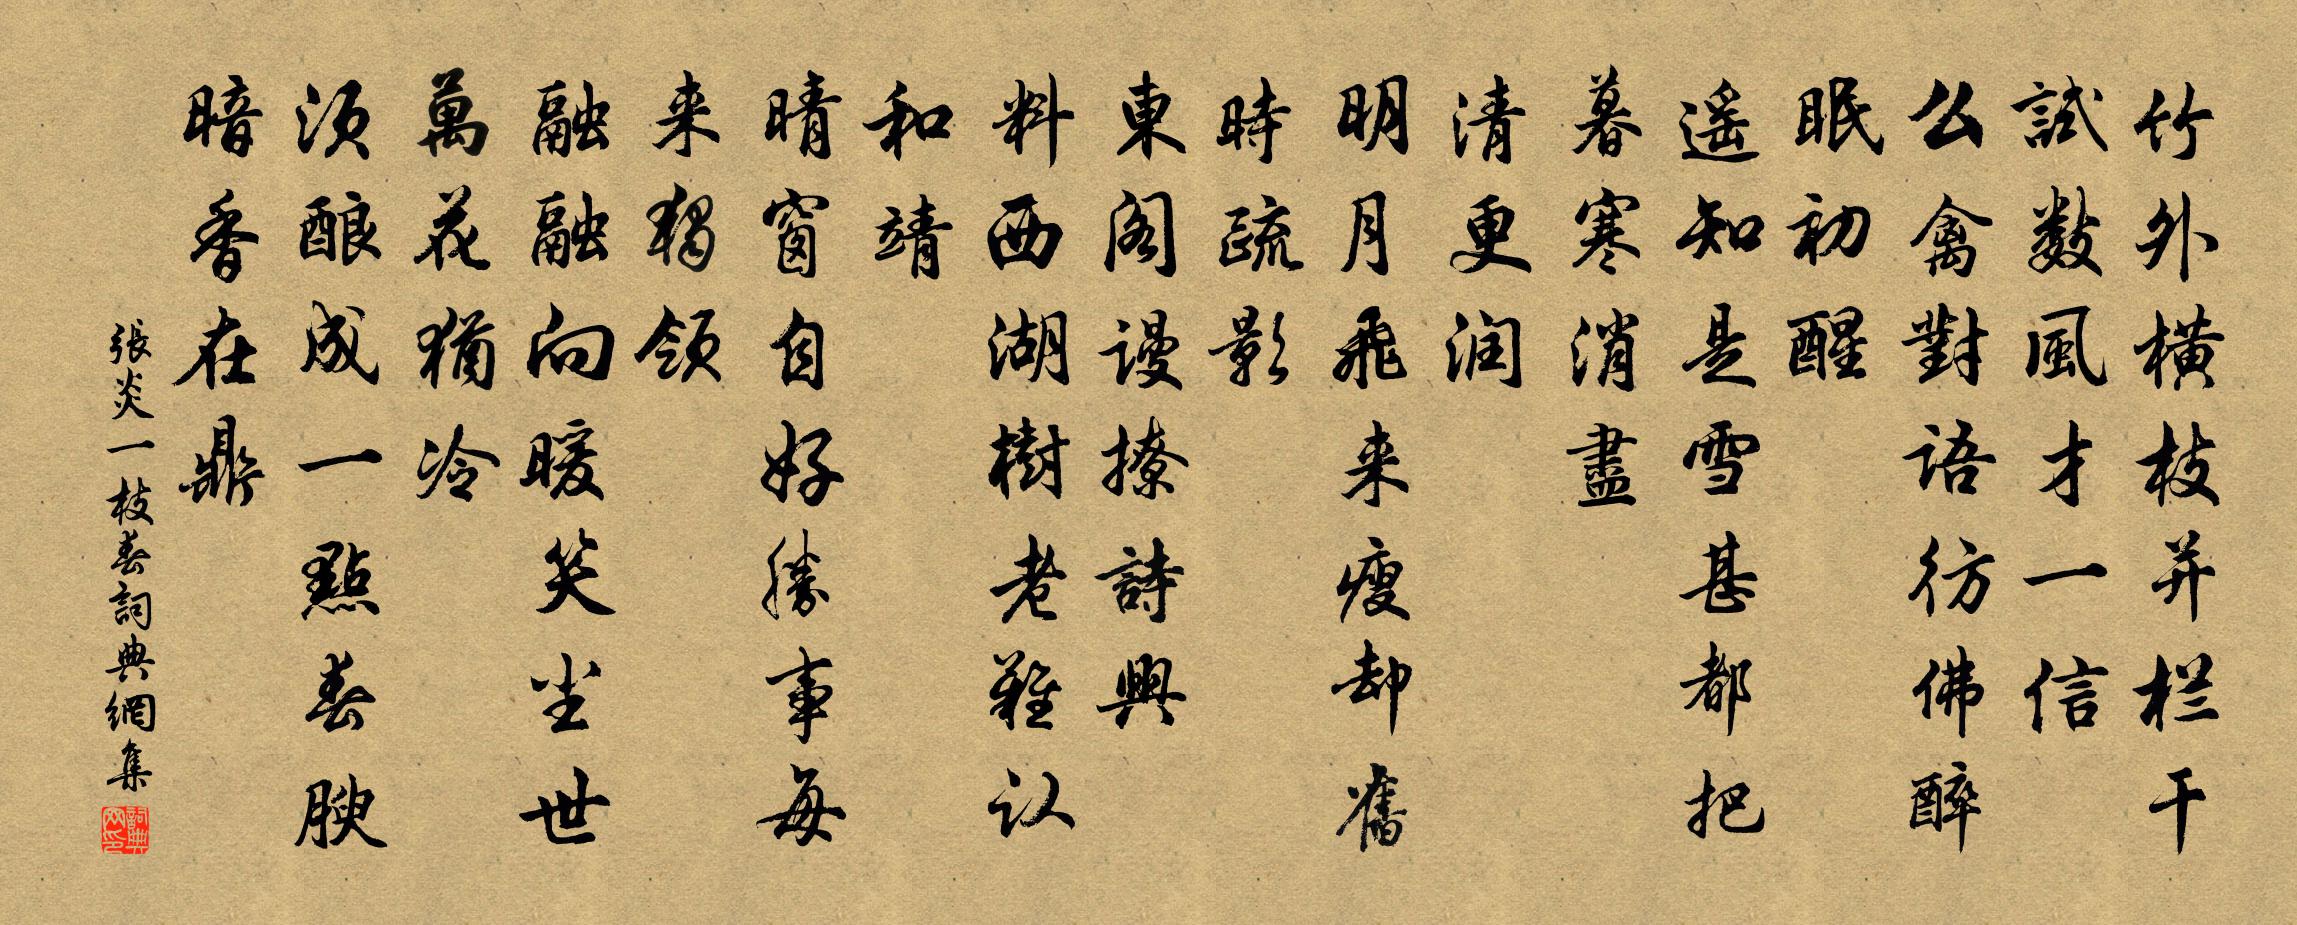 竹外横枝并栏干
試數風才一信
么禽對語彷佛醉
眠初醒
遥知是雪甚都把
暮寒消盡
清更润
明月飛来瘦却舊
時疏影
東阁谩撩詩興
料西湖樹老難认
和靖
晴窗自好勝事每
来独领
融融向暖笑尘世
萬花猶冷
须酿成一點春腴
暗香在鼎
張炎一枝春詞典網集
詞典网印